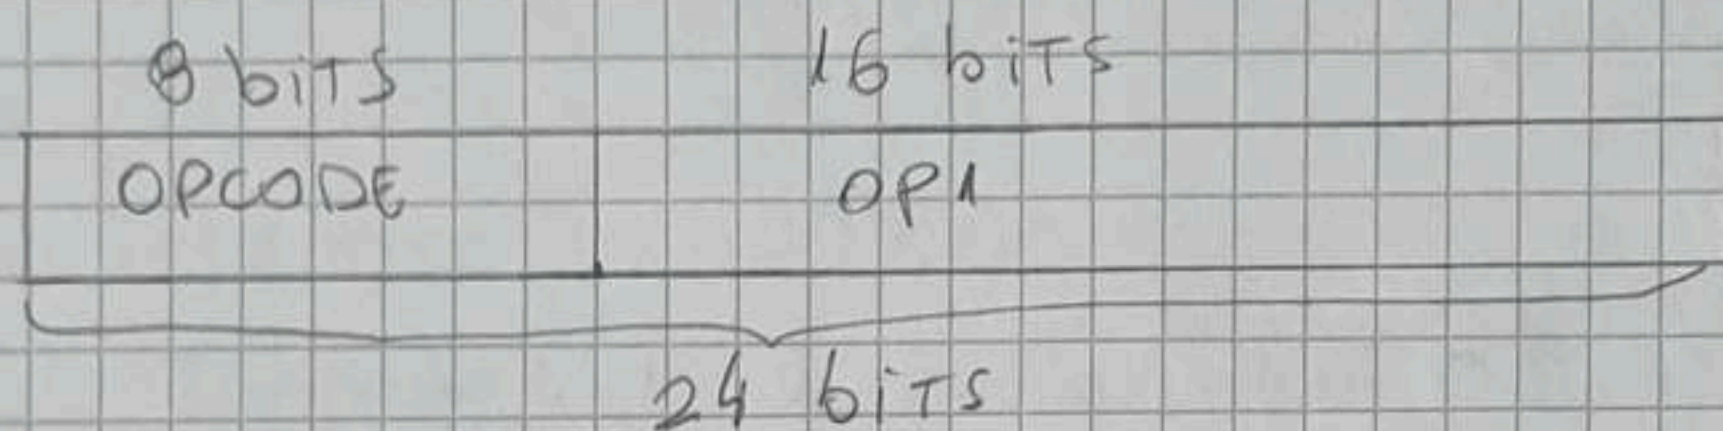 8 biTS 16 biTS
OPCODE OP1
24 biTS